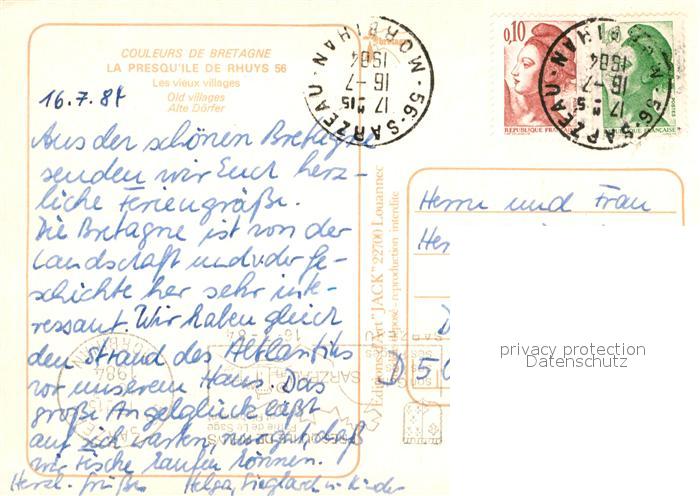 COULEURS DE BRETAGNE
LA PRESQU'ILE DE RHUYS 56
Les vieux villages
Old villages
Alte Dörfer
16.7.84
Aus der schönen Bretagne
senden wir Euch herz-
liche Feriengrüße.
Die Bretagne ist von der
Landschaft und der Ge-
schichte her sehr inte-
ressant. Wir haben gleich
den Strand des Altlantiks
vor unserem Haus. Das
große Angelglück läßt
auf sich warten,
wir Fische kaufen können.
Herzl. Grüße Helga, Sieglach u. Kinder
56-SARZEAU-MORBIHAN
17 H 15
16-7
1984
0,10
REPUBLIQUE FRANÇAISE
POSTES
56-SARZEAU-MORBIHAN
17 H 15
16-7
1984
Editions d'Art "JACK" 22700 Louannec
déposé - reproduction interdite
Herrn und Frau
He
D
D 50
privacy protection
Datenschutz